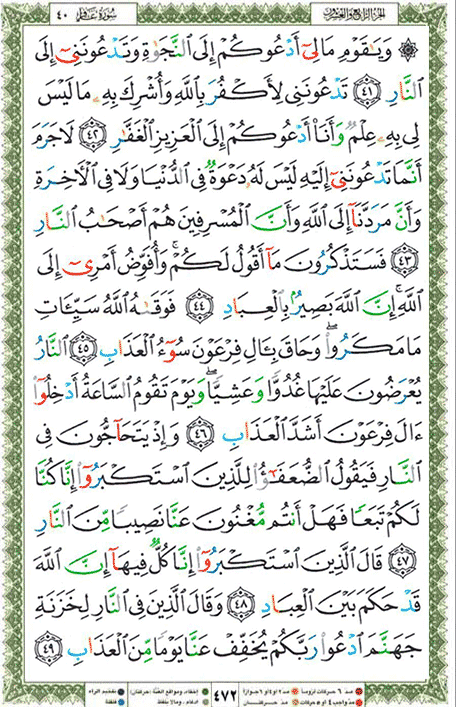 سُورَةُ غَافِرٍ ٤٠
الجزء الرابع والعشرون
۞ وَيَـٰقَوْمِ مَا لِىٓ أَدْعُوكُمْ إِلَى ٱلنَّجَوٰةِ وَتَدْعُونَنِىٓ إِلَى
ٱلنَّارِ ٤١ تَدْعُونَنِى لِأَكْفُرَ بِٱللَّهِ وَأُشْرِكَ بِهِۦ مَا لَيْسَ
لِى بِهِۦ عِلْمٌ وَأَنَا۠ أَدْعُوكُمْ إِلَى ٱلْعَزِيزِ ٱلْغَفَّـٰرِ ٤٢ لَا جَرَمَ
أَنَّمَا تَدْعُونَنِىٓ إِلَيْهِ لَيْسَ لَهُۥ دَعْوَةٌ فِى ٱلدُّنْيَا وَلَا فِى ٱلْـَٔاخِرَةِ
وَأَنَّ مَرَدَّنَآ إِلَى ٱللَّهِ وَأَنَّ ٱلْمُسْرِفِينَ هُمْ أَصْحَـٰبُ ٱلنَّارِ
٤٣ فَسَتَذْكُرُونَ مَآ أَقُولُ لَكُمْ ۚ وَأُفَوِّضُ أَمْرِىٓ إِلَى
ٱللَّهِ ۚ إِنَّ ٱللَّهَ بَصِيرٌۢ بِٱلْعِبَادِ ٤٤ فَوَقَىٰهُ ٱللَّهُ سَيِّـَٔاتِ
مَا مَكَرُوا۟ ۖ وَحَاقَ بِـَٔالِ فِرْعَوْنَ سُوٓءُ ٱلْعَذَابِ ٤٥ ٱلنَّارُ
يُعْرَضُونَ عَلَيْهَا غُدُوًّا وَعَشِيًّا ۖ وَيَوْمَ تَقُومُ ٱلسَّاعَةُ أَدْخِلُوٓا۟
ءَالَ فِرْعَوْنَ أَشَدَّ ٱلْعَذَابِ ٤٦ وَإِذْ يَتَحَآجُّونَ فِى
ٱلنَّارِ فَيَقُولُ ٱلضُّعَفَـٰٓؤُا۟ لِلَّذِينَ ٱسْتَكْبَرُوٓا۟ إِنَّا كُنَّا
لَكُمْ تَبَعًا فَهَلْ أَنتُم مُّغْنُونَ عَنَّا نَصِيبًا مِّنَ ٱلنَّارِ
٤٧ قَالَ ٱلَّذِينَ ٱسْتَكْبَرُوٓا۟ إِنَّا كُلٌّ فِيهَآ إِنَّ ٱللَّهَ
قَدْ حَكَمَ بَيْنَ ٱلْعِبَادِ ٤٨ وَقَالَ ٱلَّذِينَ فِى ٱلنَّارِ لِخَزَنَةِ
جَهَنَّمَ ٱدْعُوا۟ رَبَّكُمْ يُخَفِّفْ عَنَّا يَوْمًا مِّنَ ٱلْعَذَابِ ٤٩
مدّ ٦ حركات لزوماً مدّ ٢ أو ٤ أو ٦ جوازاً
مدّ واجب ٤ أو ٥ حركات مدّ حركتان
٤٧٢
إخفاء، ومواقع الغنّة (حركتان) تفخيم الراء
إدغام، وما لا يلفظ قلقلة